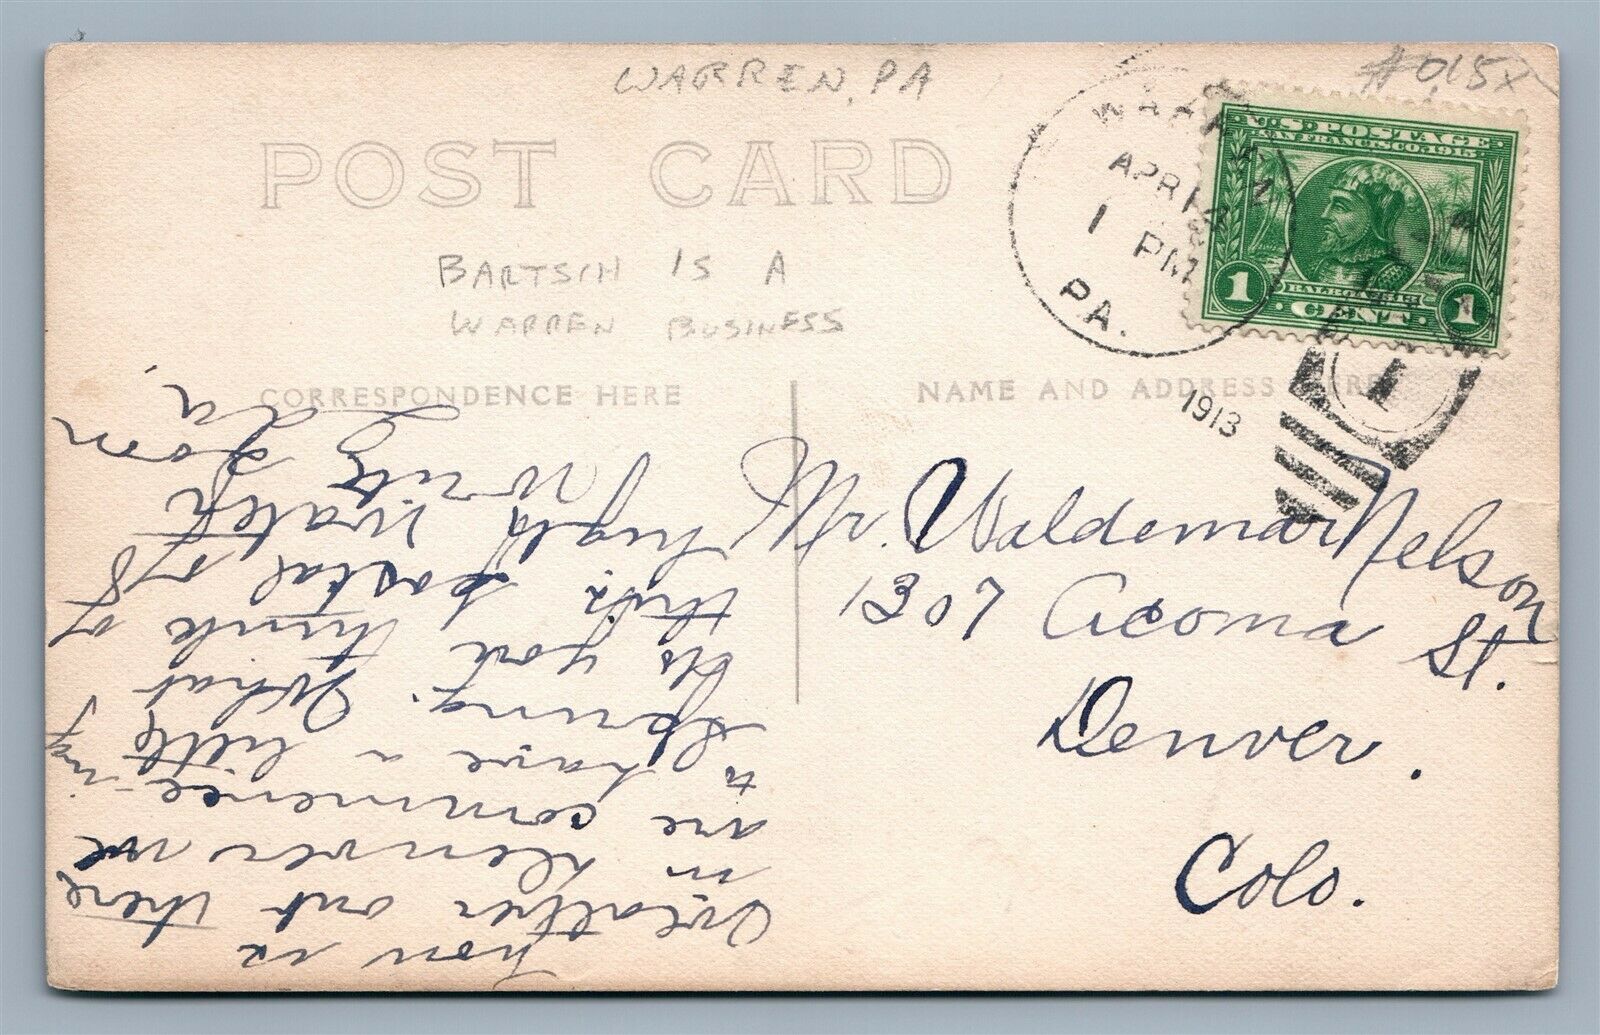 WARREN, PA
#015x
POST CARD
WARREN
APR 14
1 PM
PA.
1913
U.S. POSTAGE
SAN FRANCISCO, 1915
BALBOA 1513
1 CENT 1
BARTSCH IS A
WARREN BUSINESS
CORRESPONDENCE HERE
NAME AND ADDRESS HERE
How is
Weather out there
in Denver we
are commence-ing
to have a little
Spring. What
do you think of
this postal of
high water
Write Soon
Mr. Waldemar Nelson
1307 Acoma St.
Denver.
Colo.